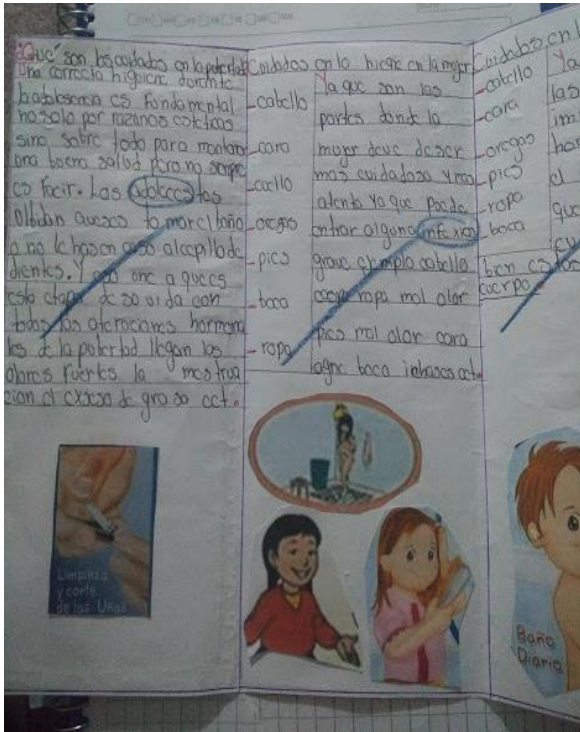 ¿Que son los cuidados en la pubertad
Una correcta higiene durante
la adolesencia es fundamental
no solo por razones esteticas
sino sobre todo para mantener
una buena salud pero no sempre
es facir. Las adolecestes
olbidan aveses tomarel baño
o no le hasen caso alcepillado
dientes. Y
esta etapa de so vida con
todas las alteraciones hormona
les de la pubertad llegan los
olores fuertes la mestrua
cion el exseso de gra sa ect.
Limpieza
y corte
de las Uñas
Cuidados en la higiene en la mujer
-cabello
-cara
-cuello
-oregas
-pies
-boca
-ropa
Ya que son las
partes donde la
mujer deve deser
mas cuidadosa y mas
atenta ya que puede
entrar alguna infexion
grave ejemplo cabello
caspa ropa mal olor
pies mal olor cara
agne boca
Cuidados en l
-cabello
-cara
-oregas
-pies
-ropa
-boca
Ya
las
im
el
que
bien
cuerpo.
Baño
Diario